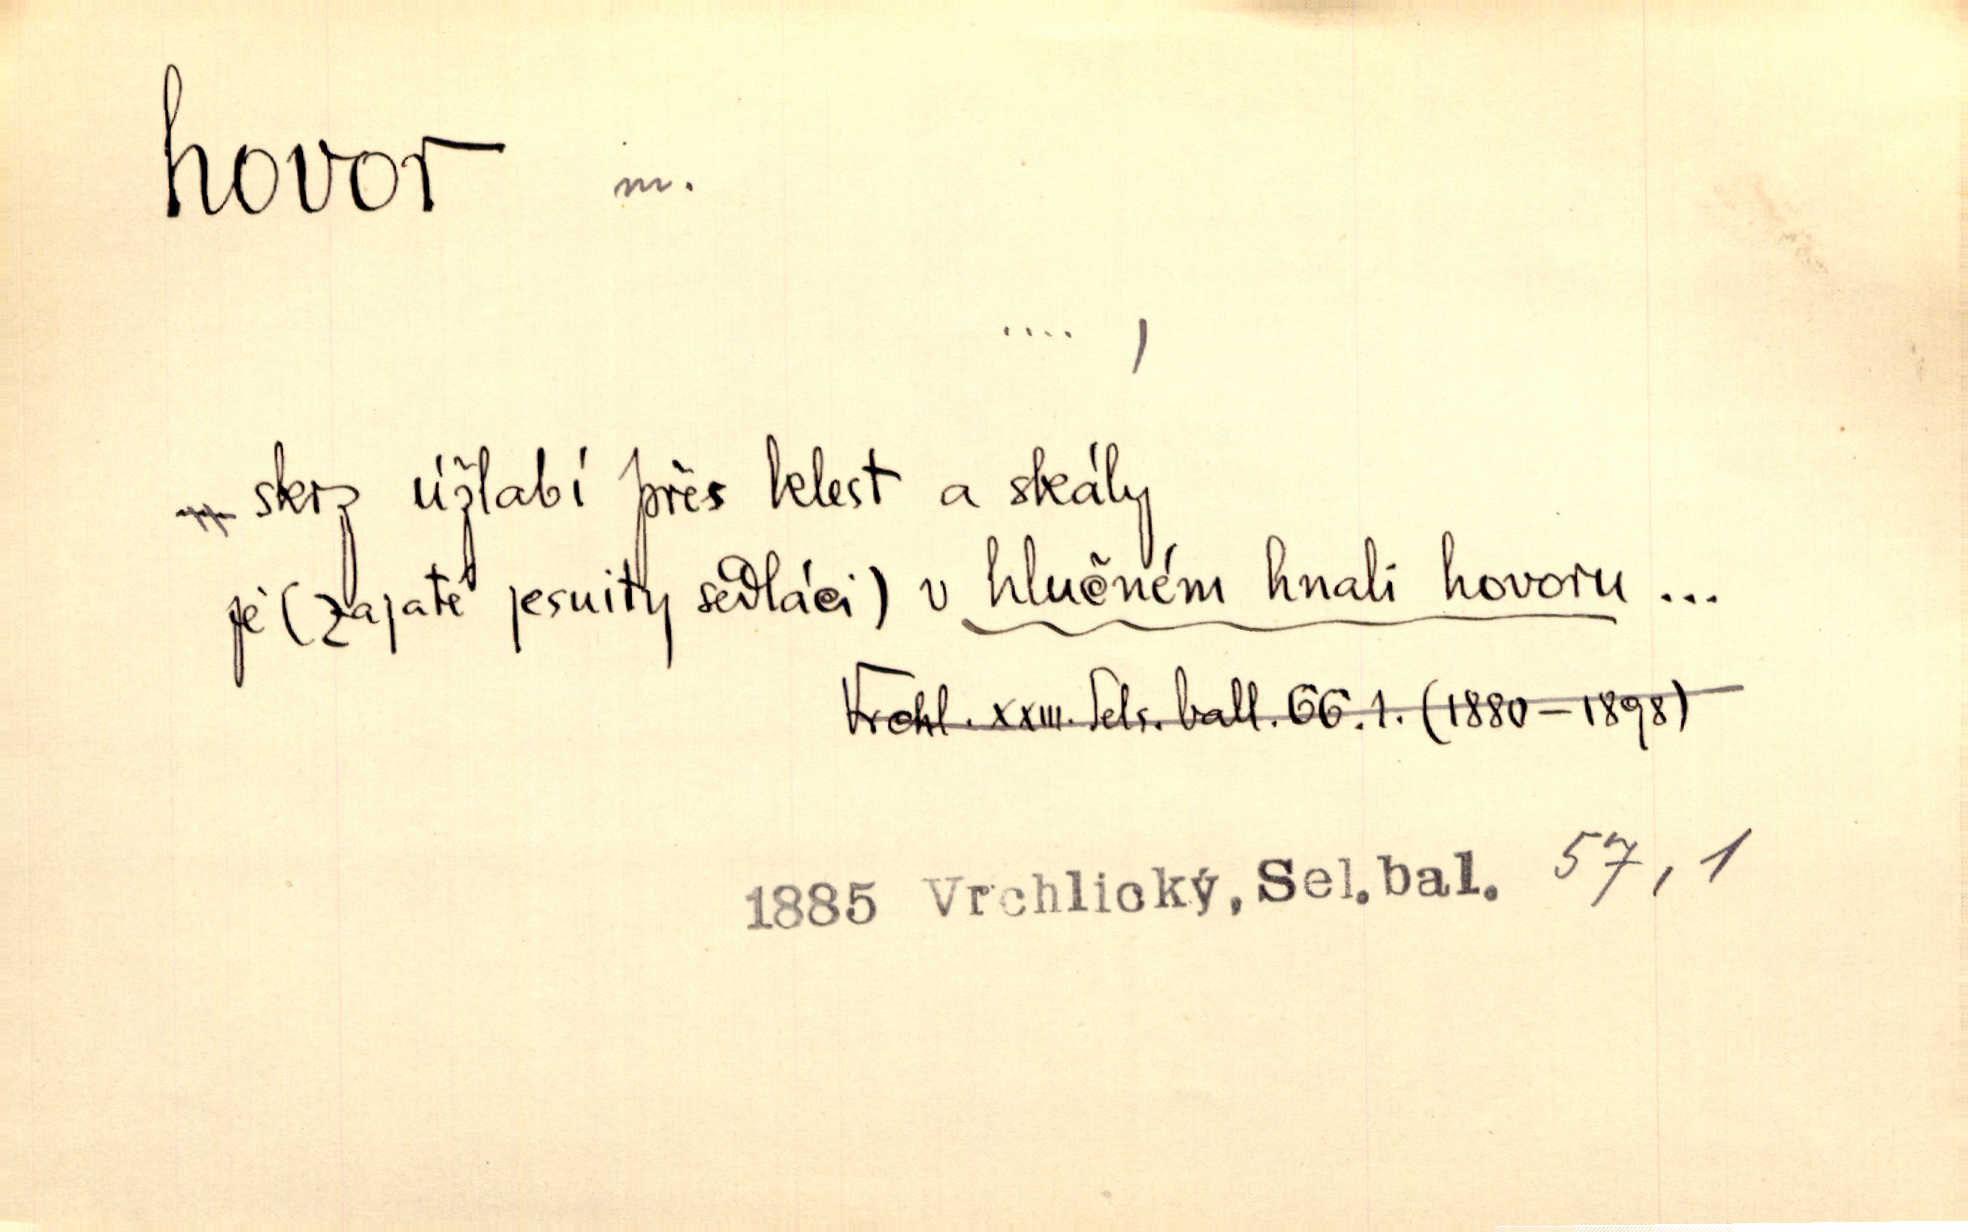 hovor m.
.... ,
skrz úžlabí přes klest a skály
je (zajaté jesuity sedláci) v hlučném hnali hovoru ...
Vrchl. XXIII. Sels. ball. 66.1. (1880–1898)
1885 Vrchlický, Sel.bal. 57,1